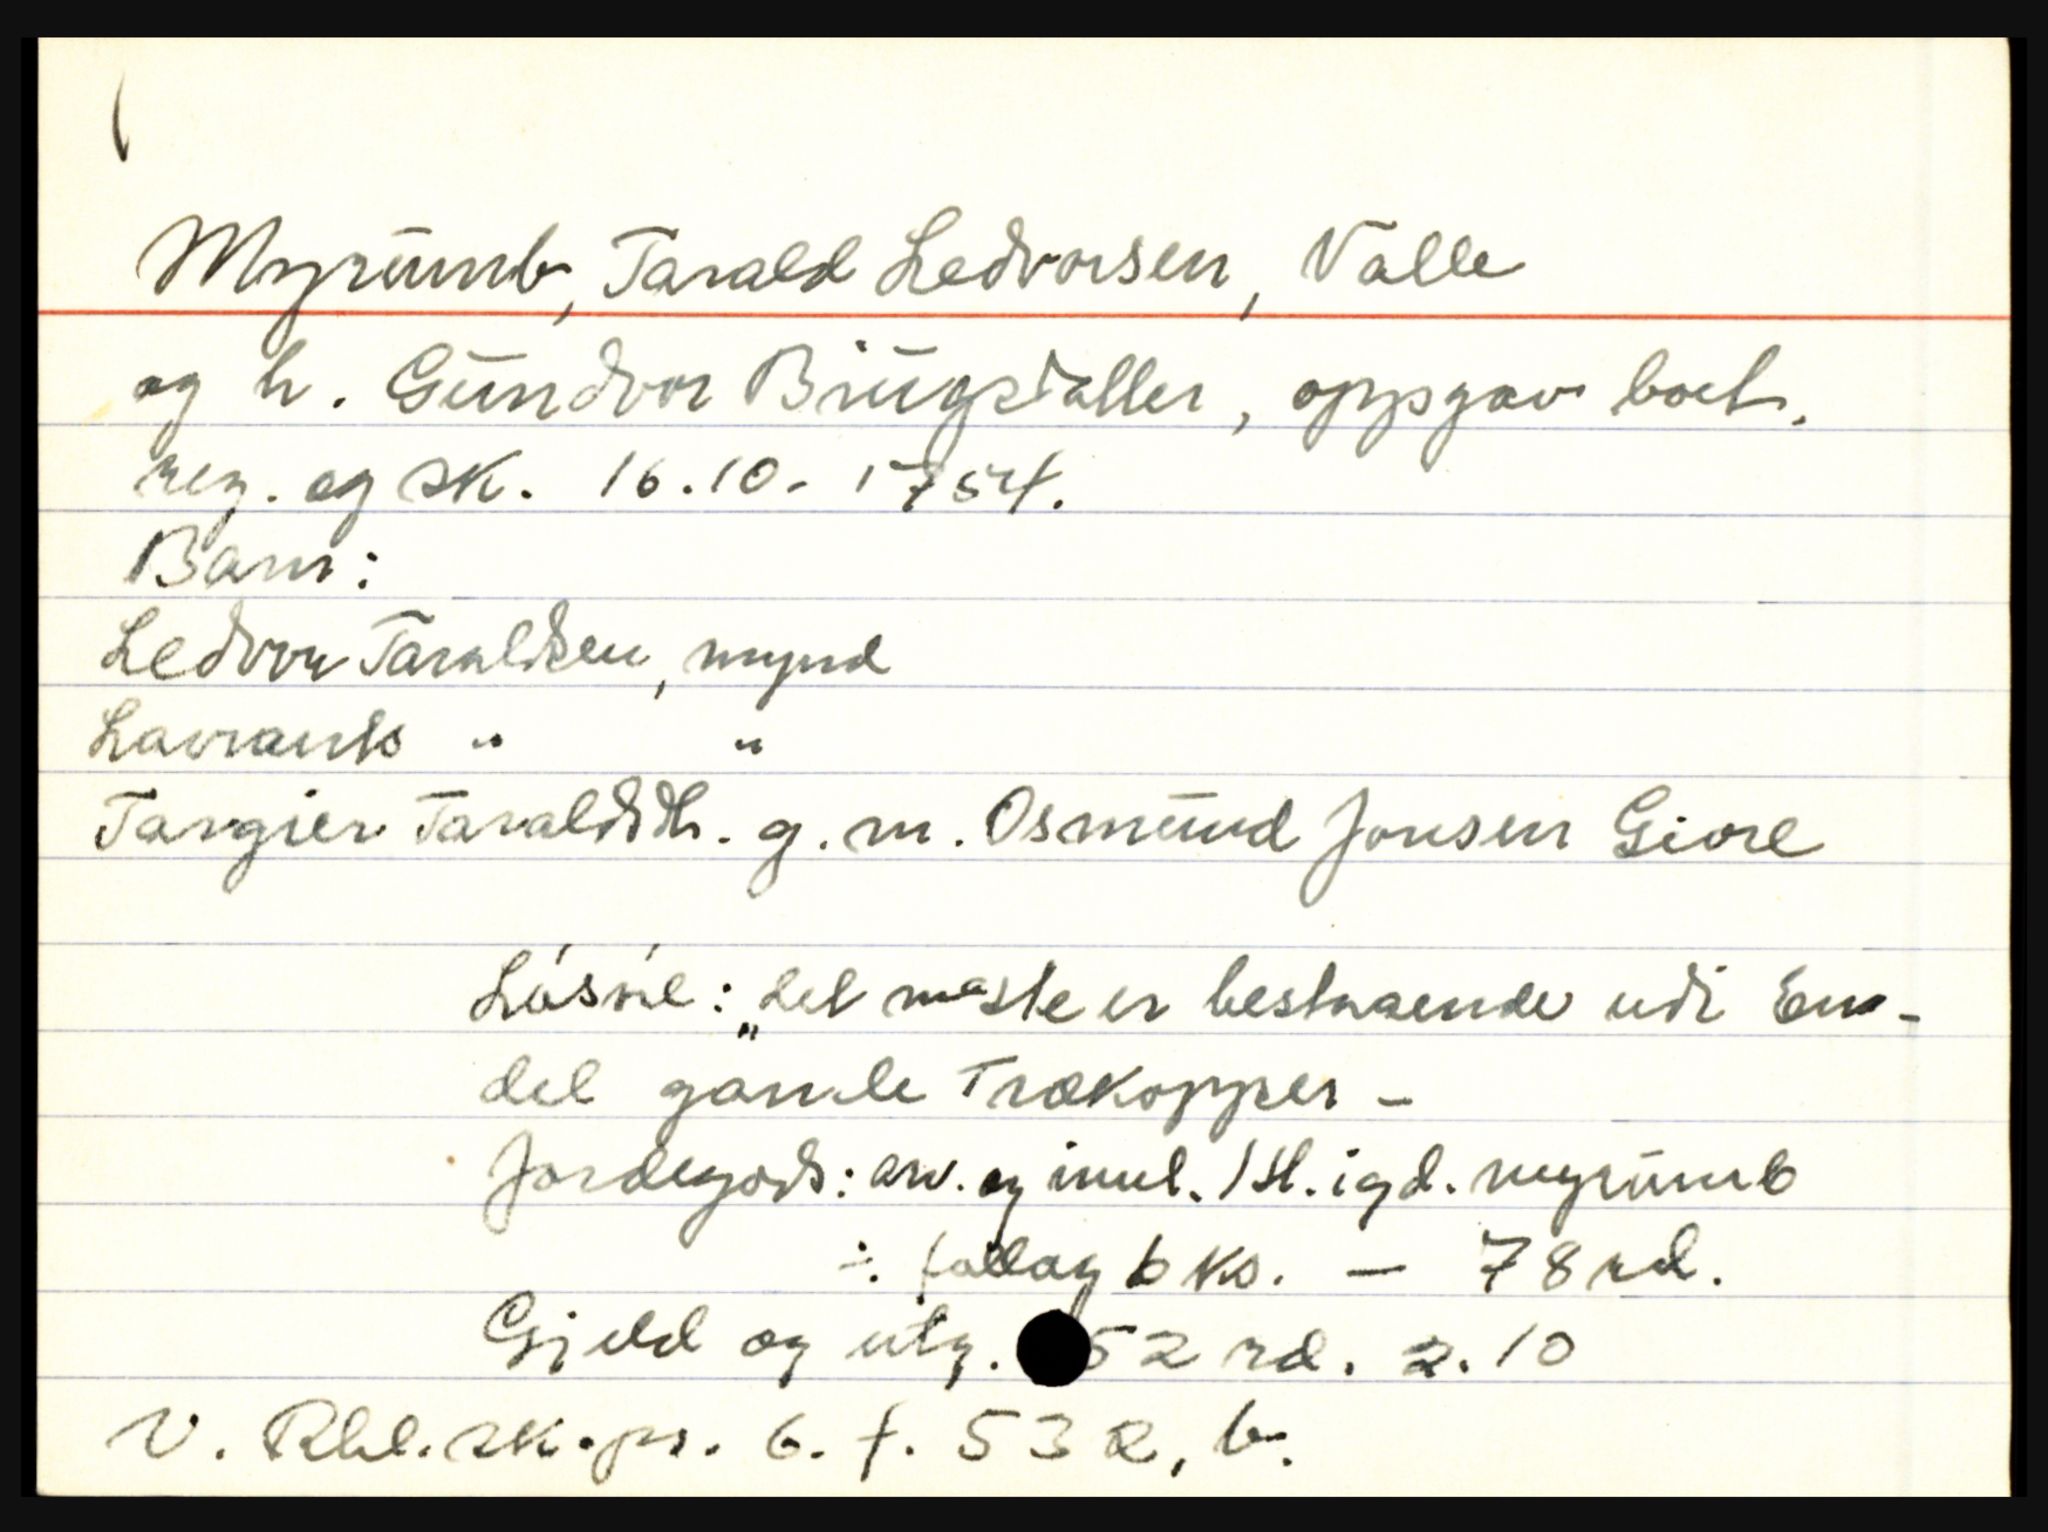 Myrumb, Tarald Ledvorsen, Valle
og h. Gundvor Biugsdatter, oppgav boet.
reg. og sk. 16.10. 1754.
Barn:
Ledvor Taraldsen, mynd
Lavrants " "
Targier Taraldsdtr. g. m. Osmund Jonsen Giore
Lösöre: „det maste er bestaaende udi Een-
del gamle Trækopper -
Jordegods: arv. og innl. 1 H. i gd. Myrumb
÷ fallag 6 ks. — 78 rd.
Gjeld og utg. 52 rd. 2. 10
V. Rbl. sk. pr. 6. f. 532, b.